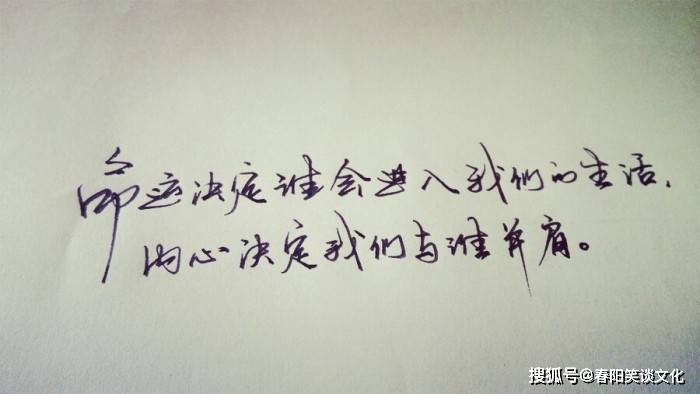 命运决定谁会进入我们的生活,
内心决定我们与谁并肩。
搜狐号@春阳笑谈文化